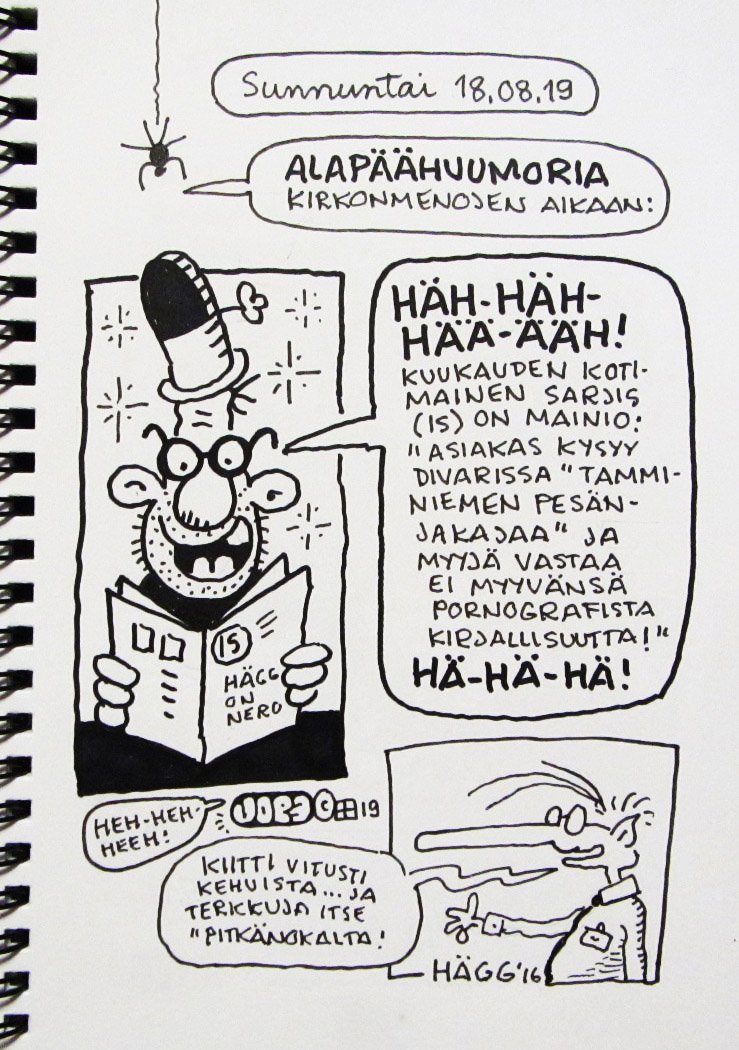 Sunnuntai 18.08.19
ALAPÄÄHUUMORIA
KIRKONMENOJEN AIKAAN:
HÄH-HÄH-
HÄÄ-ÄÄH!
KUUKAUDEN KOTI-
MAINEN SARJIS
(IS) ON MAINIO:
"ASIAKAS KYSYY
DIVARISSA "TAMMI-
NIEMEN PESÄN-
JAKAJAA" JA
MYYJÄ VASTAA
EI MYYVÄNSÄ
PORNOGRAFISTA
KIRJALLISUUTTA!"
HÄ-HÄ-HÄ!
IS
HÄGG
ON
NERO
HEH-HEH-
HEEH!
JOPE © 19
KIITTI VITUSTI
KEHUISTA...JA
TERKKUJA ITSE
"PITKÄNOKALTA!
HÄGG'16